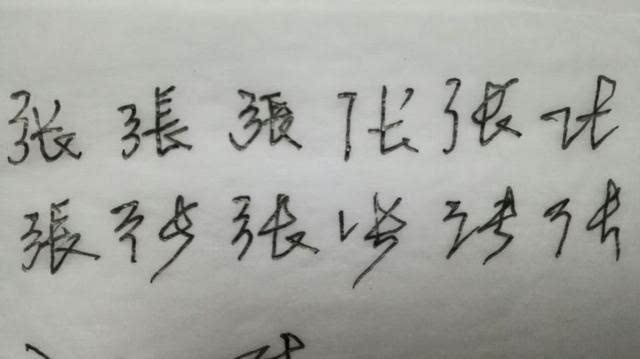 张張張张張张
張张張张张张